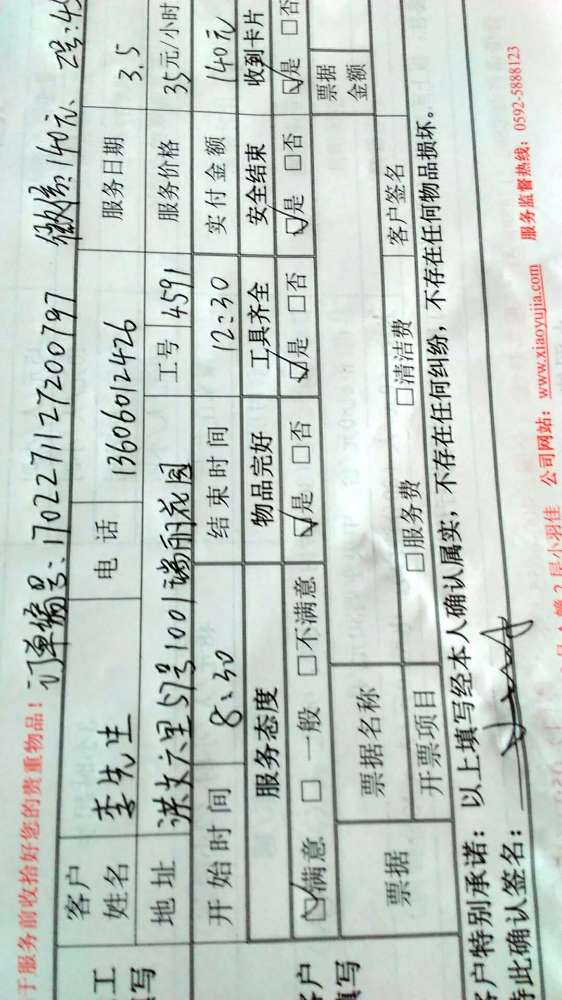 于服务前收拾好您的贵重物品! 订单编号: 1702271127200797 微信: 140元、
客户姓名 李先生 电话 13606012426 服务日期 3.5
地址 洪文六里57号1001瑞丽花园 工号 4591 服务价格 35元/小时
开始时间 8:30 结束时间 12:30 实付金额 140元
服务态度 物品完好 工具齐全 安全结束 收到卡片
☑满意 □一般 □不满意 ☑是 □否 ☑是 □否 ☑是 □否 ☑是 □否
票据 票据名称 票据金额
开票项目 □服务费 □清洁费 客户签名
客户特别承诺: 以上填写经本人确认属实, 不存在任何纠纷, 不存在任何物品损坏。
特此确认签名:
第2层小羽佳 公司网站: www.xiaoyujia.com 服务监督热线: 0592-5888123